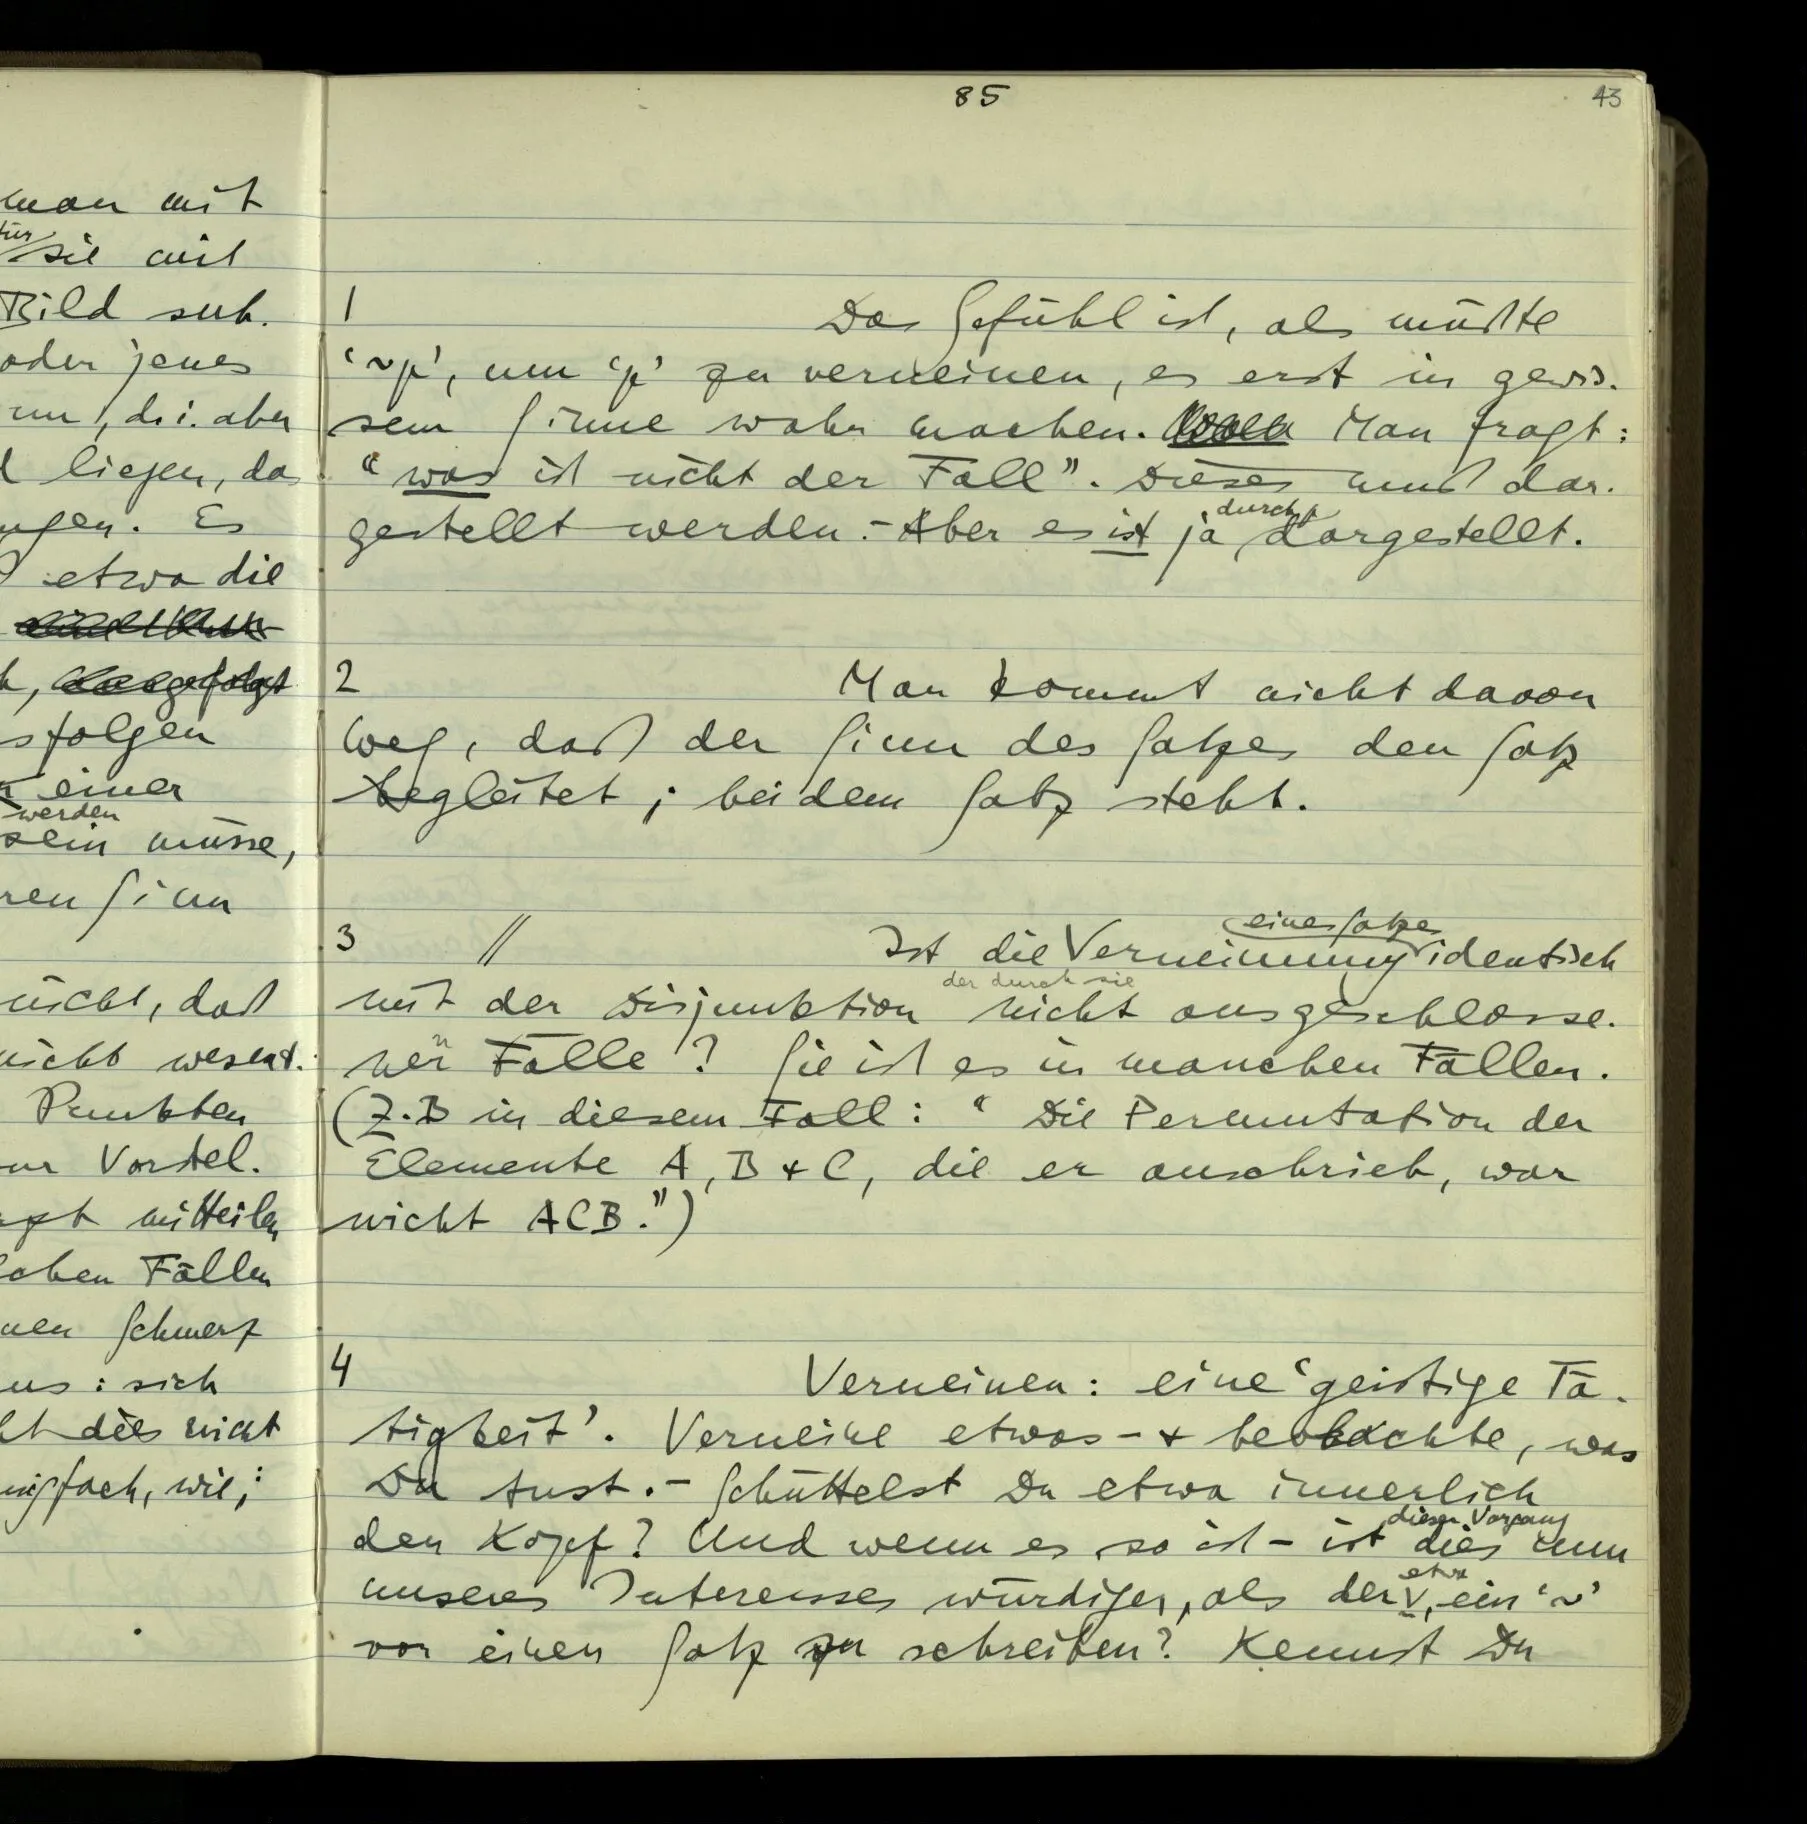 man mit
für
sie mit
Bild sub.
oder jenes
nun, d.i. aber
liegen, das
ungen. Es
etwa die
sfolgen
einer
werden
sein müsse,
ren Sinn
nicht, daß
nicht wesent.
Punkten
Vorstel.
mitteilen
chen Fällen
nen Schmerz
us: sich
dies nicht
fach, wie,:
85
43
1
Das Gefühl ist, als müßte
‘~p’, um ‘p’ zu verneinen, es erst in gewis-
sem Sinne wahr machen. Man fragt:
“was ist nicht der Fall”. Dieses muß dar-
durch
gestellt werden. – Aber es ist ja dargestellt.
2
Man kommt nicht davon
weg, daß der Sinn des Satzes den Satz
begleitet; bei dem Satz steht.
3 //
eines Satzes
Ist die Verneinung identisch
der durch sie
mit der Disjunktion nicht ausgeschlosse-
n
ner Fälle? Sie ist es in manchen Fällen.
(Z.B in diesem Fall: “Die Permutation der
Elemente A, B & C, die er anschrieb, war
nicht ACB.”)
4
Verneinen: eine ‘geistige Tä-
tigkeit’. Verneine etwas – & beobachte, was
Du tust. – Schüttelst Du etwa innerlich
dieser Vorgang
den Kopf? Und wenn es so ist – ist dies nun
etwa
unseres Interesses würdiger, als der, ein ‘~’
vor einen Satz zu schreiben? Kennst Du